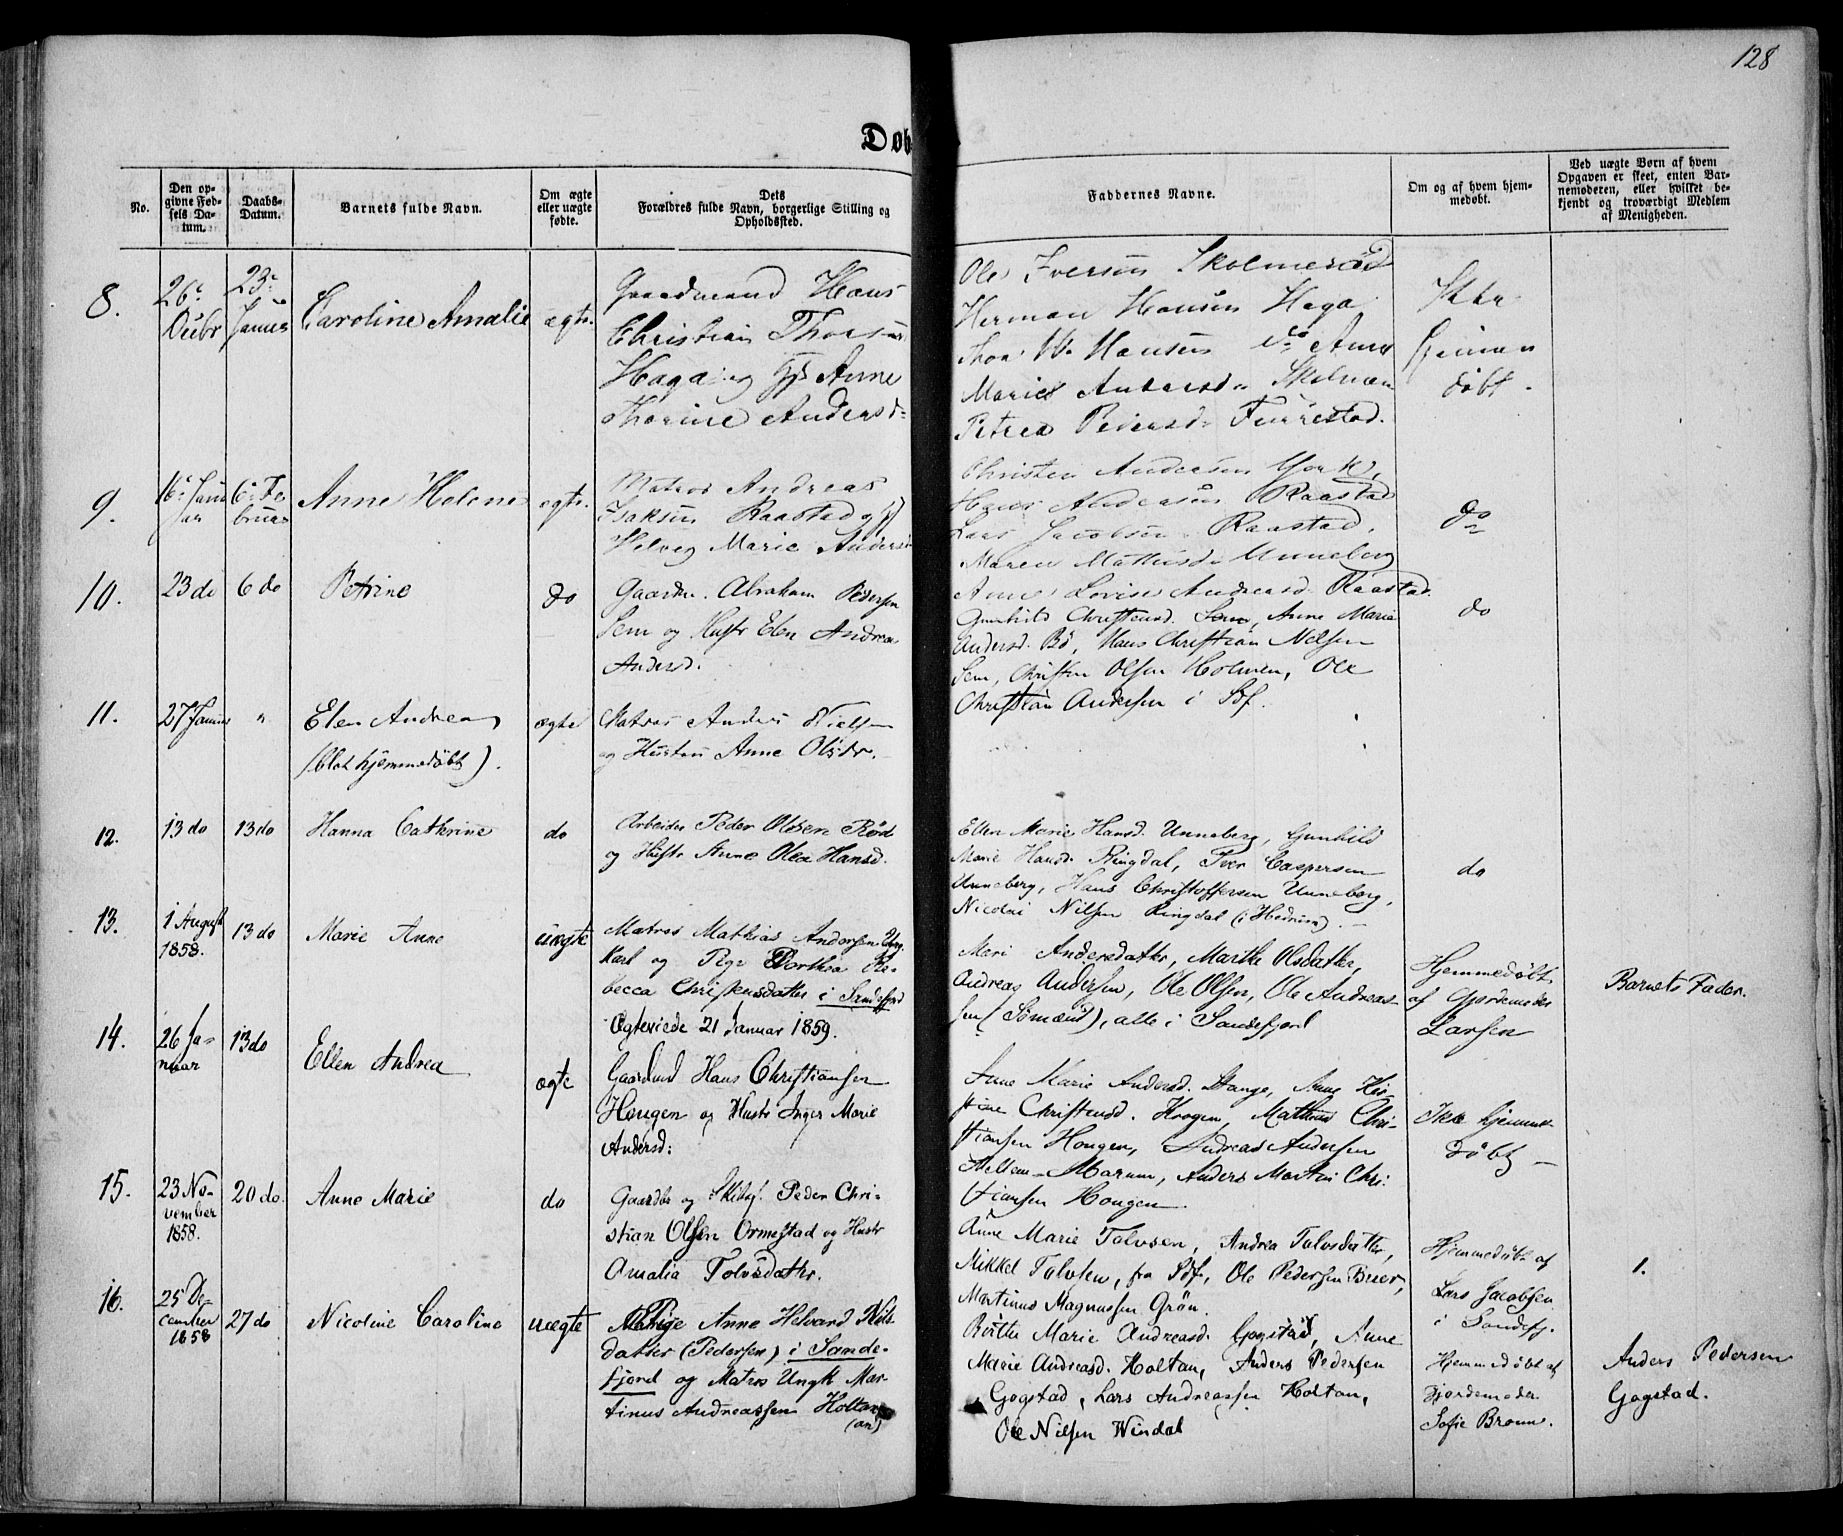 128
Døb
No.
Den op-
givne Fød-
sels Da-
tum.
Daabs-
Datum.
Barnets fulde Navn.
Om ægte
eller uægte
fødte.
Dets
Forældres fulde Navn, borgerlige Stilling og
Opholdssted.
Faddernes Navne.
Om og af hvem hjem-
medøbt.
Ved uægte Børn af hvem
Opgaven er skeet, enten Bar-
nemoderen, eller hvilket be-
kjendt og troværdigt Medlem
af Menigheden.
8.
26
23
Januar
Caroline Amalie
ægte.
Gaardmand Hans
Christian
Haga og Anne
Thorine Andersd
Ole Iversen
Herman Hansen Haga
Hansen do Anne
Marie Andersd
Petrea Pedersd. Furrestad.
Ikke
hjemme
døbt.
9.
16 Janu
ar
6 Fe
bruar
Anne Helene
ægte.
Matros Andreas
Isaksen Raastad og
Helveg Marie Andersd
Christen Andersen York,
Hans Andersen Raastad
Lars Jacobsen Raastad,
Maren Unneberg
Anne Lovise Andreasd. Raastad.
do
10.
23 do
6 do
Petrine
do
Gaardm. Abraham Pedersen
Sem og Hustr Elen Andrea
Andersd.
Gunhild Christensd. Sem, Anne Marie
Andersd. Bö, Hans Christian Nelsen
Sem, Christen Olsen Holmen, Ole
Christian Andersen i Sdf.
do
11.
27 Januar
"
Elen Andrea
(blot hjemmedöbt).
ægte
Matros Anders Nielsen
og Hustru Anne Olsdr.
12.
13 do
13 do
Hanna Cathrine
do
Arbeider Peder Olsen Röd
og Hustr Anne Olea Hansd.
Ellen Marie Hansd. Unneberg, Gunhild
Marie Hansd. Ringdal, Iver Caspersen
Unneberg, Hans Christoffersen Unneberg,
Nicolai Nilsen Ringdal (i Hedrum).
do
13.
1 August
1858.
13 do
Marie Anne
uægte
Matros Mathias Andersen Ung
karl og Pige Dorthea Re-
becca Christensdatter i Sandefjord
Ægteviede 21 Januar 1859.
Mari Andersdatter, Marthe Olsdatter,
Andreas Andersen, Ole Olsen, Ole Andreas-
sen (Sömænd), alle i Sandefjord
Hjemmedöbt
af Gjordemoder
Larsen
Barnets Fader.
14.
26 Ja-
nuar
13 do
Ellen Andrea
ægte
Gaardmd Hans Christiansen
Hougen og Hustr Inger Marie
Andersd:
Anne Marie Andersd. Stange, Anne Kir-
stine Christensd. Hougen, Mathias Chri-
stiansen Hougen, Andreas Andersen
Mellem-Marum, Anders Martin Chri-
stiansen Hougen
Ikke hjemme
döbt
15.
23 No-
vember
1858.
20 do.
Anne Marie
do
Gaardbr og Peder Chri-
stian Olsen Ormestad og Hustr
Amalia Tolvsdatter.
Anne Marie Tolvsen, Andrea Tolvsdatter,
Mikkel Tolvsen, fra Sdf, Ole Pedersen Bruer,
Martinus Magnussen Grön.
Hjemmedöbt af
Lars Jacobsen
i Sandefj.
1.
16.
25 De-
cember
1858
27 do
Nicoline Caroline
uægte
Pige Anne Helvard Nils-
datter (Pedersen) i Sande-
fjord og Matros Ungk Mar
tinus Andreassen Holtan
(an)
Birthe Marie Andreasd. Gogstad, Anne
Marie Andreasd. Holtan, Anders Pedersen
Gogstad, Lars Andreassen Holtan,
Ole Nilsen Windal
Hjemmedöbt af
Gjordemoder
Sofie Bronn.
Anders Pedersen
Gogstad.